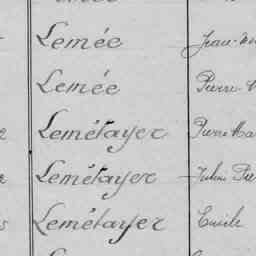 Lemée Jean-
Lemée Pierre-
2 Lemétayer Pierre Ma
2 Lemétayer Julien Pie
5 Lemétayer Emile